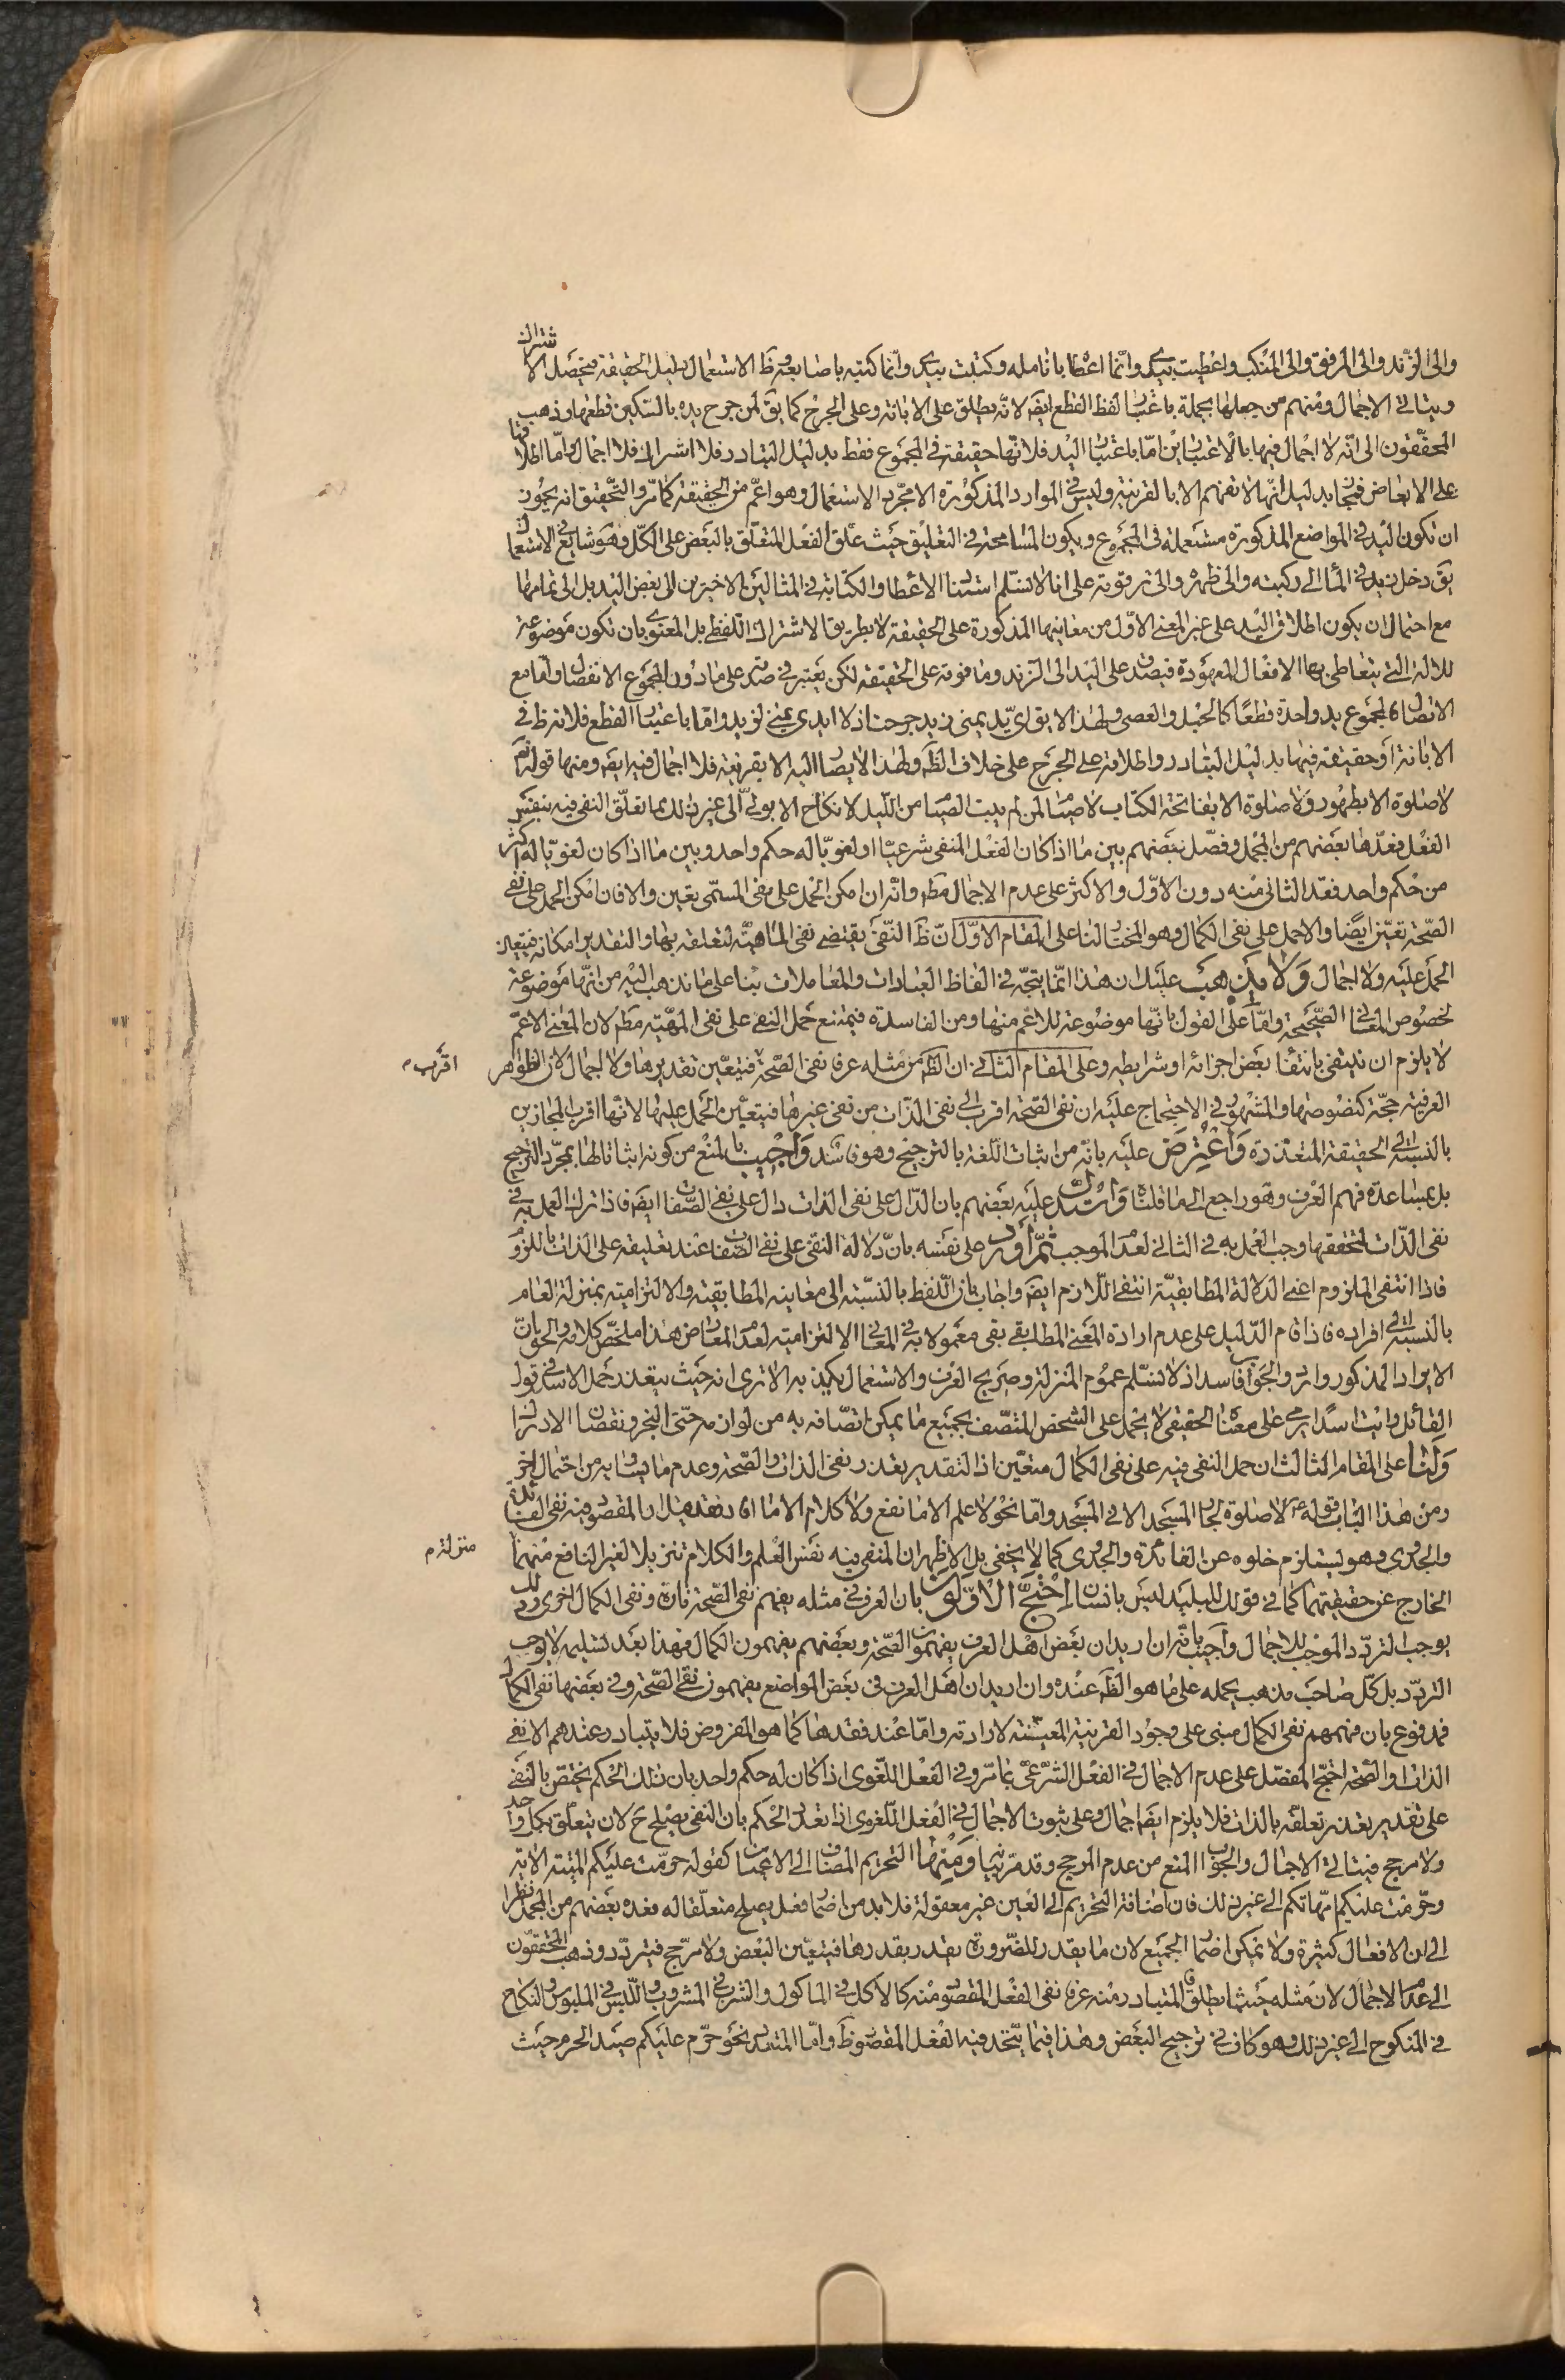 والى الزند والى المرفق والى المنكب واعطيت بيدي وانما اعطا بانامله وكتبت بيدي وانما كتبه باصابعه وظ الاستعمال دليل الحقيقة فيحصل الاشتراك
ويتاتى الاجمال ومنهم من جعلها مجملة باعتبار لفظ القطع ايضا لانه يطلق على الابانة وعلى الجرح كما يق لمن جرح يده بالسكين قطعها وذهب
المحققون الى انه لا اجمال فيها بالاعتبارين اما باعتبار اليد فلانها حقيقة في المجموع فقط بدليل التبادر فلا اشتراك فلا اجمال واما اطلاقها
على الابعاض فمجاز بدليل انها لا تفهم الا بالقرينة وليس في الموارد المذكورة الا مجرد الاستعمال وهو اعم من الحقيقة كما مر والتحقيق انه يجوز
ان تكون اليد في المواضع المذكورة مستعملة في المجموع ويكون المسامحة في التعليق حيث علق الفعل المتعلق بالبعض على الكل وهو شايع في الاستعمال
يق دخل زيد في الماء الى ركبته والى ظهره والى ترقوته على انا لا نسلم استناد الاعطا والكتابة في المثالين الاخيرين الى بعض اليد بل الى تمامها
مع احتمال ان يكون اطلاق اليد على غير المعنى الاول من معانيها المذكورة على الحقيقة لا بطريق الاشتراك اللفظي بل المعنوي بان تكون موضوعة
للالة التي يتعاطى بها الافعال المعهودة فيصدق على اليد الى الزند وما فوقه على الحقيقة لكن يعتبر في صدقه على ما دون المجموع الانفصال واما مع
الاتصال فالمجموع يد واحدة قطعا كالحبل والعصى ولهذا لا يق اي يد يمنى زيد جرحت اذ لا ايدي يمنى لزيد واما باعتبار القطع فلانه ظ في
الابانة او حقيقة فيها بدليل التبادر واطلاقه على الجرح على خلاف الظ ولهذا لا يصار اليه الا بقرينة فلا اجمال فيه ايضا ومنها قوله ع
لا صلوة الا بطهور ولا صلوة الا بفاتحة الكتاب لا صيام لمن لم يبت الصيام من الليل لا نكاح الا بولي الى غير ذلك مما تعلق النفي فيه بنفس
الفعل فعدها بعضهم من المجمل وفصل بعضهم بين ما اذا كان الفعل المنفي شرعيا او لغويا له حكم واحد وبين ما اذا كان لغويا له اكثر
من حكم واحد فعد الثاني منه دون الاول والاكثر على عدم الاجمال مط وانه ان امكن الحمل على نفي المسمى تعين والا فان امكن الحمل على نفي
الصحة تعين ايضا والا حمل على نفي الكمال وهو المختار لنا على المقام الاول ان ظ النفي يقتضي نفي الماهية لتعلقه بها والتقدير امكانه فيتعين
الحمل عليه ولا اجمال ولا يذهب عليك ان هذا انما يتجه في الفاظ العبادات والمعاملات بناء على ما نذهب اليه من انها موضوعة
لخصوص المعاني الصحيحة واما على القول بانها موضوعة للاعم منها ومن الفاسدة فيمتنع حمل النفي على نفي المهية مط لان المعنى الاعم
لا يلزم ان ينتفي بانتفاء بعض اجزائه او شرايطه وعلى المقام الثاني ان الظ من مثله عرفا نفي الصحة فيتعين تقديرها ولا اجمال لان الظواهر
اقرب م
العرفية حجة كنصوصها والمشهور في الاحتجاج عليه ان نفي الصحة اقرب الى نفي الذات من نفي غيرها فيتعين الحمل عليها لانها اقرب المجازين
بالنسبة الى الحقيقة المتعذرة واعترض عليه بانه من اثبات اللغة بالترجيح وهو فاسد واجيب بالمنع من كونه اثباتا لها بمجرد الترجيح
بل بمساعدة فهم العرف وهو راجع الى ما قلناه واستدل عليه بعضهم بان الدال على نفي الذات دال على نفي الصفات ايضا فاذا ترك العمل به في
نفي الذات لتحققها وجب العمل به في الثاني لعدم الموجب ثم اورد على نفسه بان دلالة النفي على نفي الصفات عند تعليقه على الذات باللزوم
فاذا انتفى الملزوم اعني الدلالة المطابقية انتفى اللازم ايضا واجاب بان اللفظ بالنسبة الى معانيه المطابقية والالتزامية بمنزلة العام
بالنسبة الى افراده فاذا قام الدليل على عدم ارادة المعنى المطابقي بقى معمولا به في المعاني الالتزامية لعدم المعارض هذا ملخص كلامه والحق ان
الايراد المذكور وارد والجواب فاسد اذ لا نسلم عموم المنزلة وصريح العرف والاستعمال يكذبه الا ترى انه حيث يتعذر حمل الاسد في قول
القائل رايت اسدا يرمي على معناه الحقيقي لا يحمل على الشخص المتصف بجميع ما يمكن اتصافه به من لوازمه حتى البخر ونقصان الادراك
ولنا على المقام الثالث ان حمل النفي فيه على نفي الكمال متعين اذ التقدير تعذر نفي الذات والصحة وعدم ما يساويه من احتمال اخر
ومن هذا الباب قوله ع لا صلوة لجار المسجد الا في المسجد واما نحو لا علم الا ما نفع ولا كلام الا ما افاد فقد قيل ان المقصود فيه نفي الفائدة
والجدوى وهو يستلزم خلوه عن الفائدة والجدوى كما لا يخفى بل الاظهر ان المنفي فيه نفس العلم والكلام تنزيلا لغير النافع منهما
منزلة م
الخارج عن حقيقتهما كما في قولك للبليد ليس بانسان احتج الاولون بان العرف في مثله يفهم نفي الصحة تارة ونفي الكمال اخرى وذلك
يوجب التردد الموجب للاجمال واجيب بانه ان اريد ان بعض اهل العرف يفهمون الصحة وبعضهم يفهمون الكمال فهذا بعد تسليمه لا يوجب
التردد بل كل صاحب مذهب يحمله على ما هو الظ عنده وان اريد ان اهل العرف في بعض المواضع يفهمون نفي الصحة وفي بعضها نفي الكمال
فمدفوع بان فهمهم نفي الكمال مبنى على وجود القرينة المعينة لارادته واما عند فقدها كما هو المفروض فلا يتبادر عندهم الا نفي
الذات والصحة احتج المفصل على عدم الاجمال في الفعل الشرعي بما مر وفي الفعل اللغوي اذا كان له حكم واحد بان ذلك الحكم يختص بالنفي
على تقدير تعذر تعلقه بالذات فلا يلزم ايضا اجمال وعلى ثبوت الاجمال في الفعل اللغوي اذا تعدد الحكم بان النفي يصلح ح لان يتعلق بكل واحد
ولا مرجح فيتاتى الاجمال والجواب المنع من عدم المرجح وقد مر بيانها ومنها التحريم المضاف الى الاعيان كقوله حرمت عليكم الميتة الاية
وحرمت عليكم امهاتكم الى غير ذلك فان اضافة التحريم الى العين غير معقولة فلا بد من اضمار فعل يصلح متعلقا له فعده بعضهم من المجمل نظرا
الى ان الافعال كثيرة ولا يمكن اضمار الجميع لان ما يقدر للضرورة يقدر بقدرها فيتعين البعض ولا مرجح فيتردد وذهب المحققون
الى عدم الاجمال لان مثله حيثما يطلق المتبادر منه عرفا نفي الفعل المقصود منه كالاكل في الماكول والشرب في المشروب واللبس في الملبوس والنكاح
في المنكوح الى غير ذلك وهو كاف في ترجيح البعض وهذا فيما يتحد فيه الفعل المقصود ظ واما المتعدد نحو حرم عليكم صيد الحرم حيث